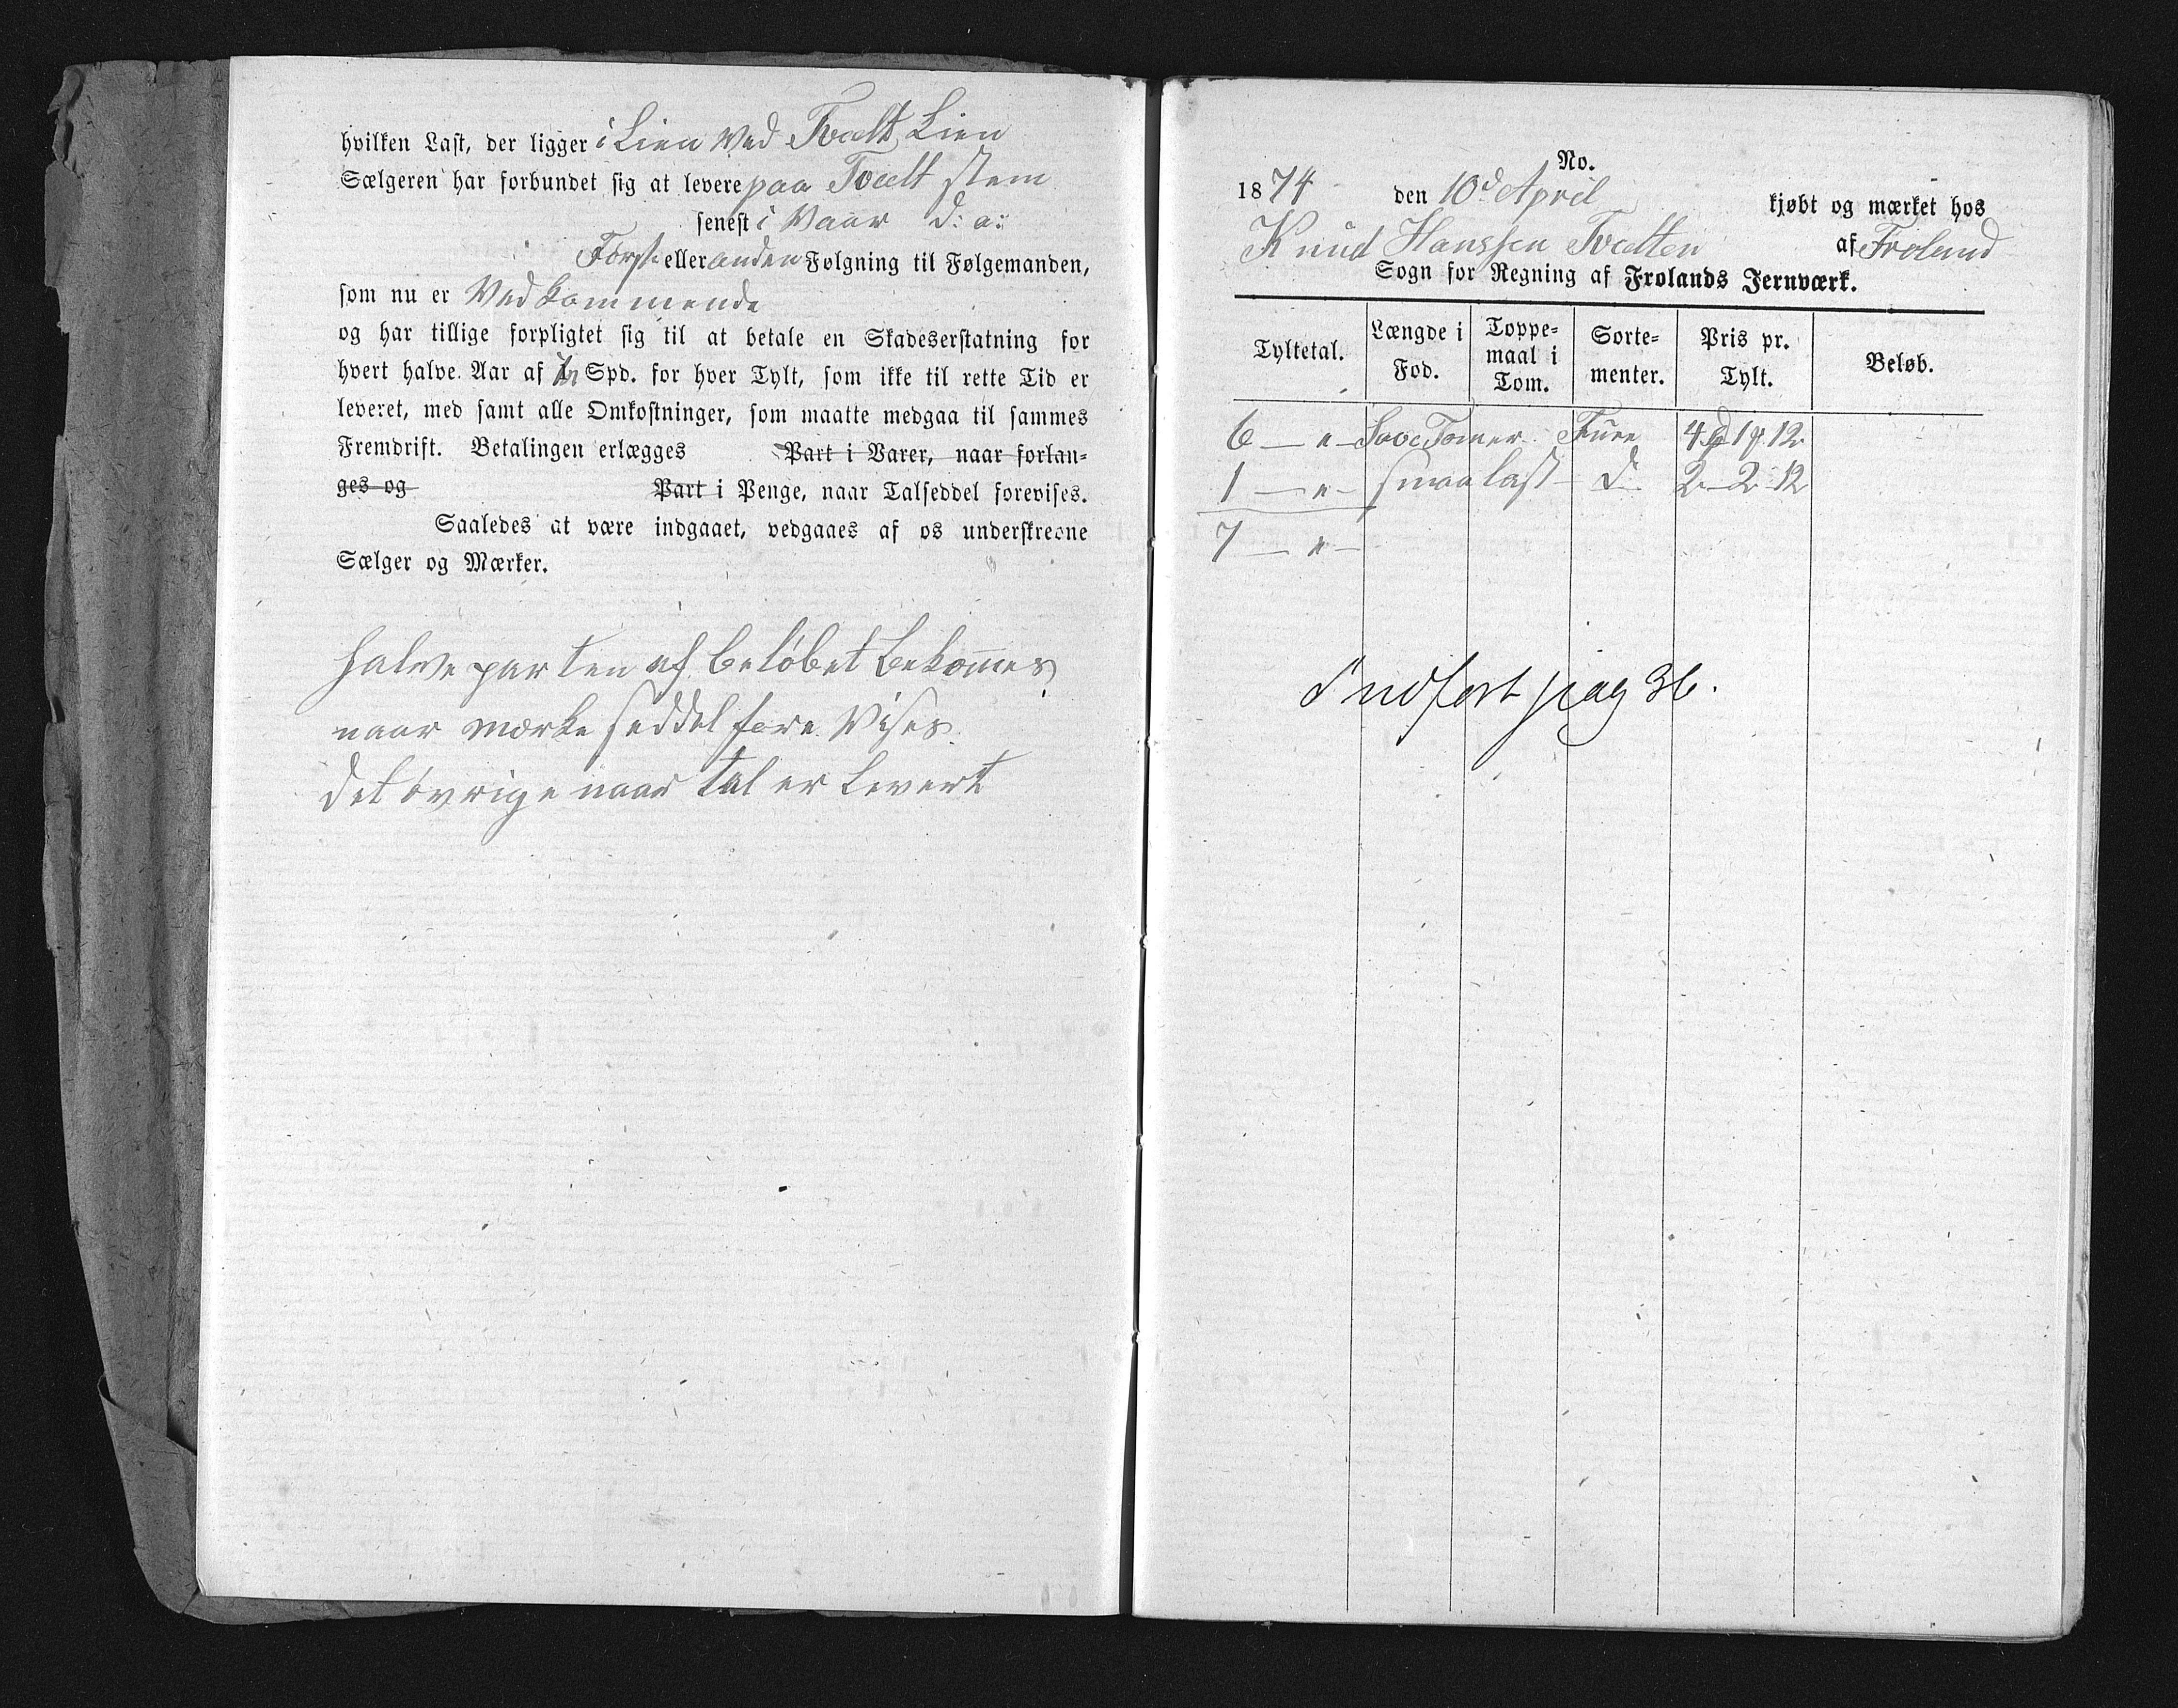 hvilken Last, der ligger i Lien Ved Tvedt Lien
Sælgeren har forbundet sig at levere paa Tvedt Stem
senest i Vaar d: a:
Først eller anden Følgning til Følgemanden,
som nu er Vedkommende
og har tillige forpligtet sig til at betale en Skadeserstatning for
hvert halve Aar af ½ Spd. for hver Tylt, som ikke til rette Tid er
leveret, med samt alle Omkostninger, som maatte medgaa til sammes
Fremdrift. Betalingen erlægges Part i Varer, naar forlan-
ges og Part i Penge, naar Talseddel forevises.
Saaledes at være indgaaet, vedgaaes af os underskrevne
Sælger og Mærker.
halve parten af beløbet bekommes
naar mærke seddel fore Vises
det øvrige naar tal er Levert
No.
1874 den 10d April kjøbt og mærket hos
Knud Hanssen Tvedten af Froland
Sogn for Regning af Frolands Jernværk.
Tyltetal. Længde i Fod. Toppe-maal i Tom. Sorte-menter. Pris pr. Tylt. Beløb.
6 — " — Save Tømer Fure 4 1 12
1 — " — smaalast d 2 - 2 - 12
7 — " —
Indført pag 36.